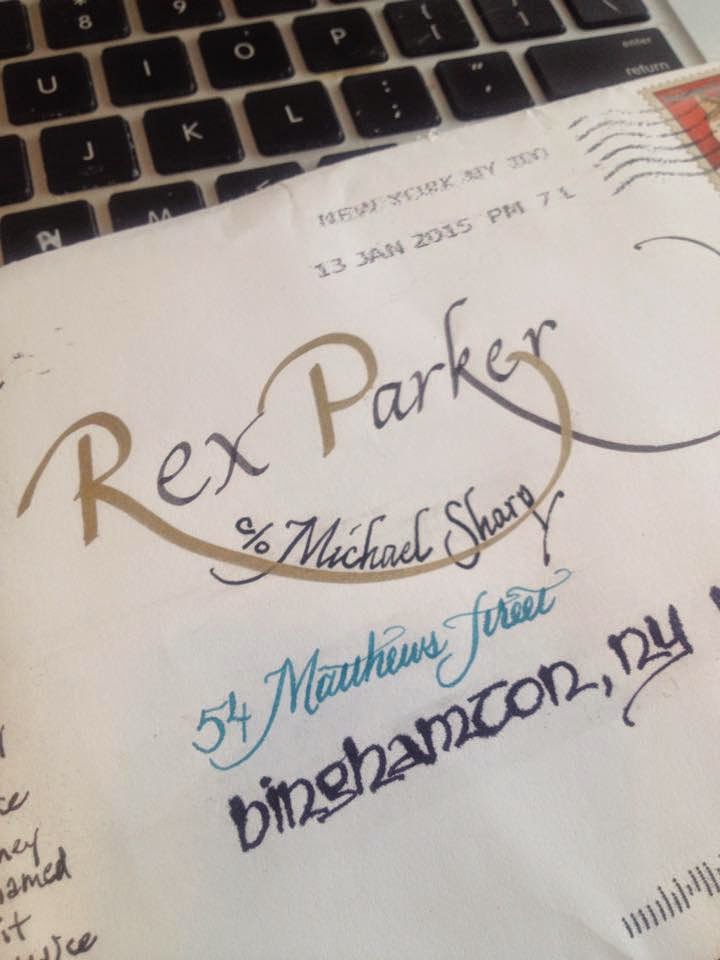 8 9
U I O P { [ enter return
J K L : ; " '
M
NEW YORK NY 100
13 JAN 2015 PM 7 L
Rex Parker
c/o Michael Sharp
54 Matthews Street
binghamton, ny
ney
named
it